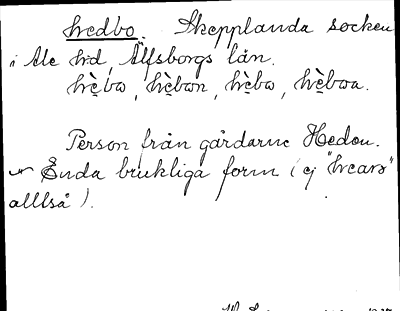 hredbo. Skepplanda socken
i Ale hrd, Älfsborgs län.
hrèbo, hrèbon, hrèbo, hrèboa.
Person från gårdarne Hedon.
Enda brukliga form (ej "hrears"
alllså).